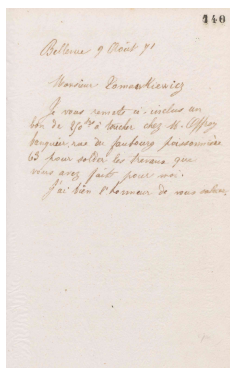 140
Bellevue 9 Août 71
Monsieur
Je vous remets ci-inclus un
bon de à toucher chez M.
banquier, rue du faubourg poissonnière
63 pour solder les travaux que
vous avez fait pour moi.
J'ai bien l'honneur de vous saluer